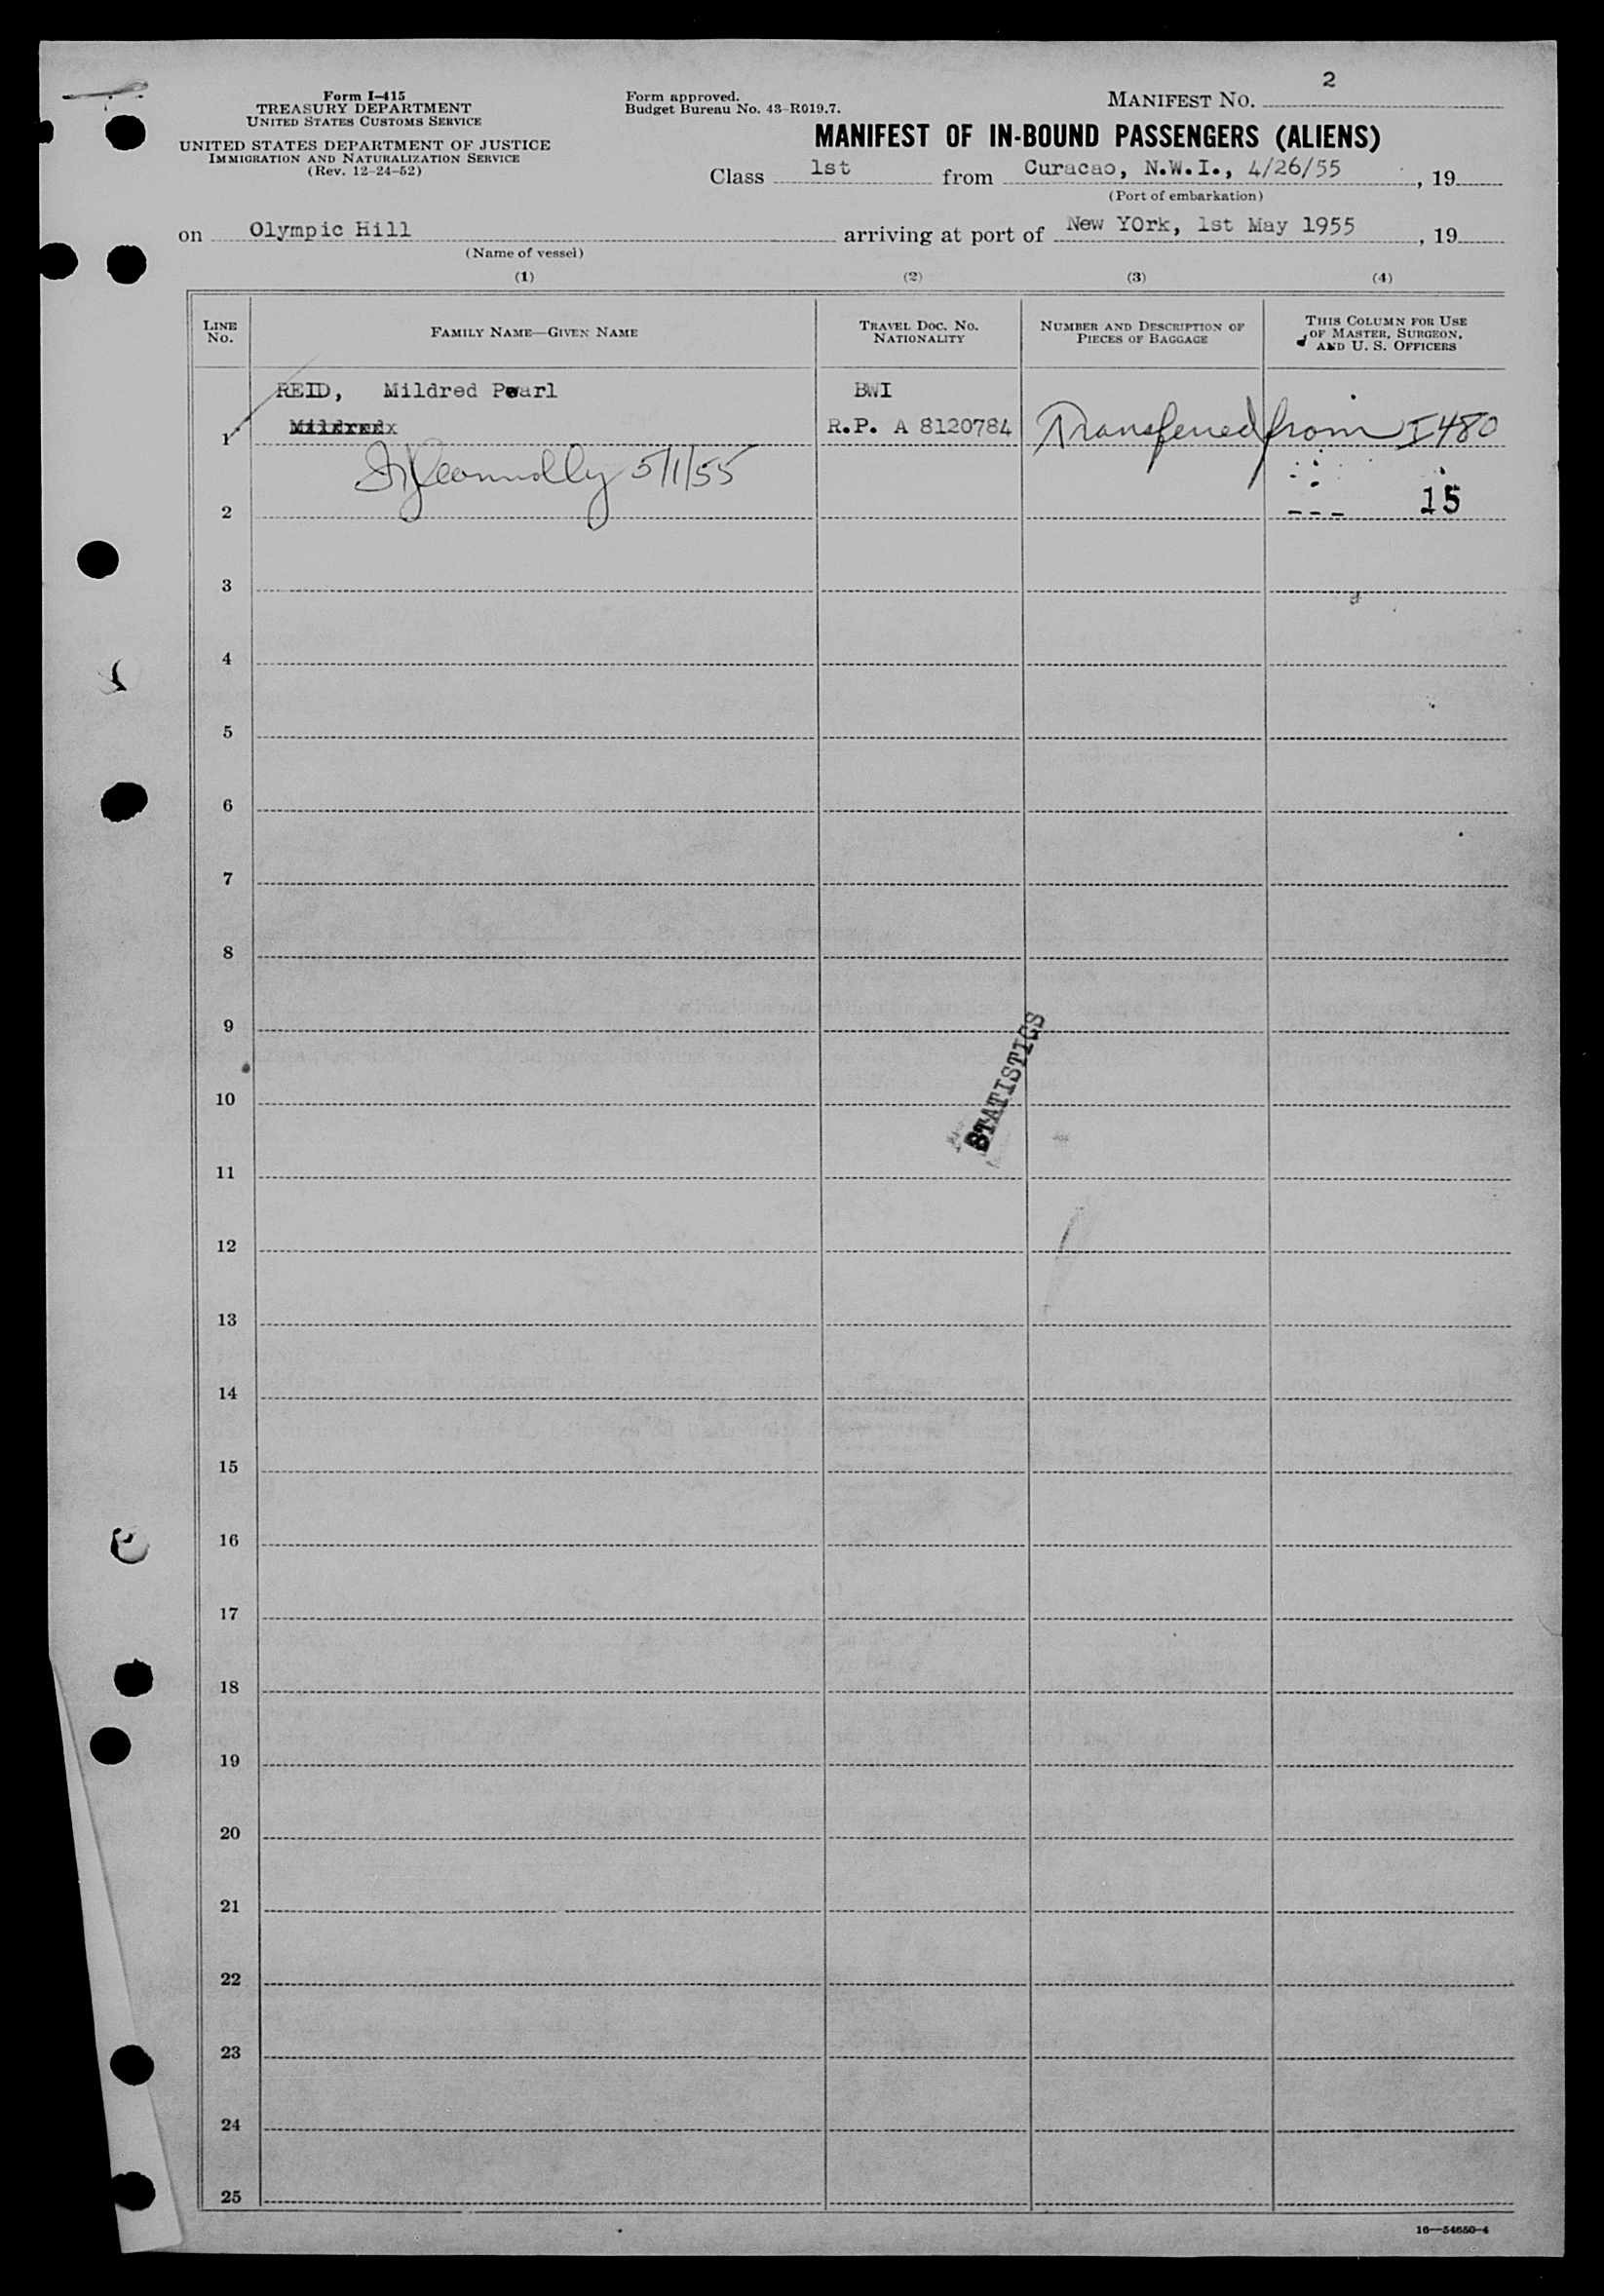 2
Form I-415
TREASURY DEPARTMENT
UNITED STATES CUSTOMS SERVICE
UNITED STATES DEPARTMENT OF JUSTICE
IMMIGRATION AND NATURALIZATION SERVICE
(Rev. 12-24-52)
Form approved.
Budget Bureau No. 43-R019.7.
MANIFEST NO.
MANIFEST OF IN-BOUND PASSENGERS (ALIENS)
Class 1st from Curacao, N.W.I., 4/26/55, 19
(Port of embarkation)
on Olympic Hill arriving at port of New YOrk, 1st May 1955, 19
(Name of vessel)
(1) (2) (3) (4)
LINE NO. FAMILY NAME—GIVEN NAME TRAVEL DOC. NO. NATIONALITY NUMBER AND DESCRIPTION OF PIECES OF BAGGAGE THIS COLUMN FOR USE OF MASTER, SURGEON, AND U. S. OFFICERS
REID, Mildred Pearl BWI
1 Mildredx R.P. A 8120784 Transferred from I480
Connolly 5/1/55
2 15
3
4
5
6
7
8
9
STATISTICS
10
11
12
13
14
15
16
17
18
19
20
21
22
23
24
25
16—54650-4